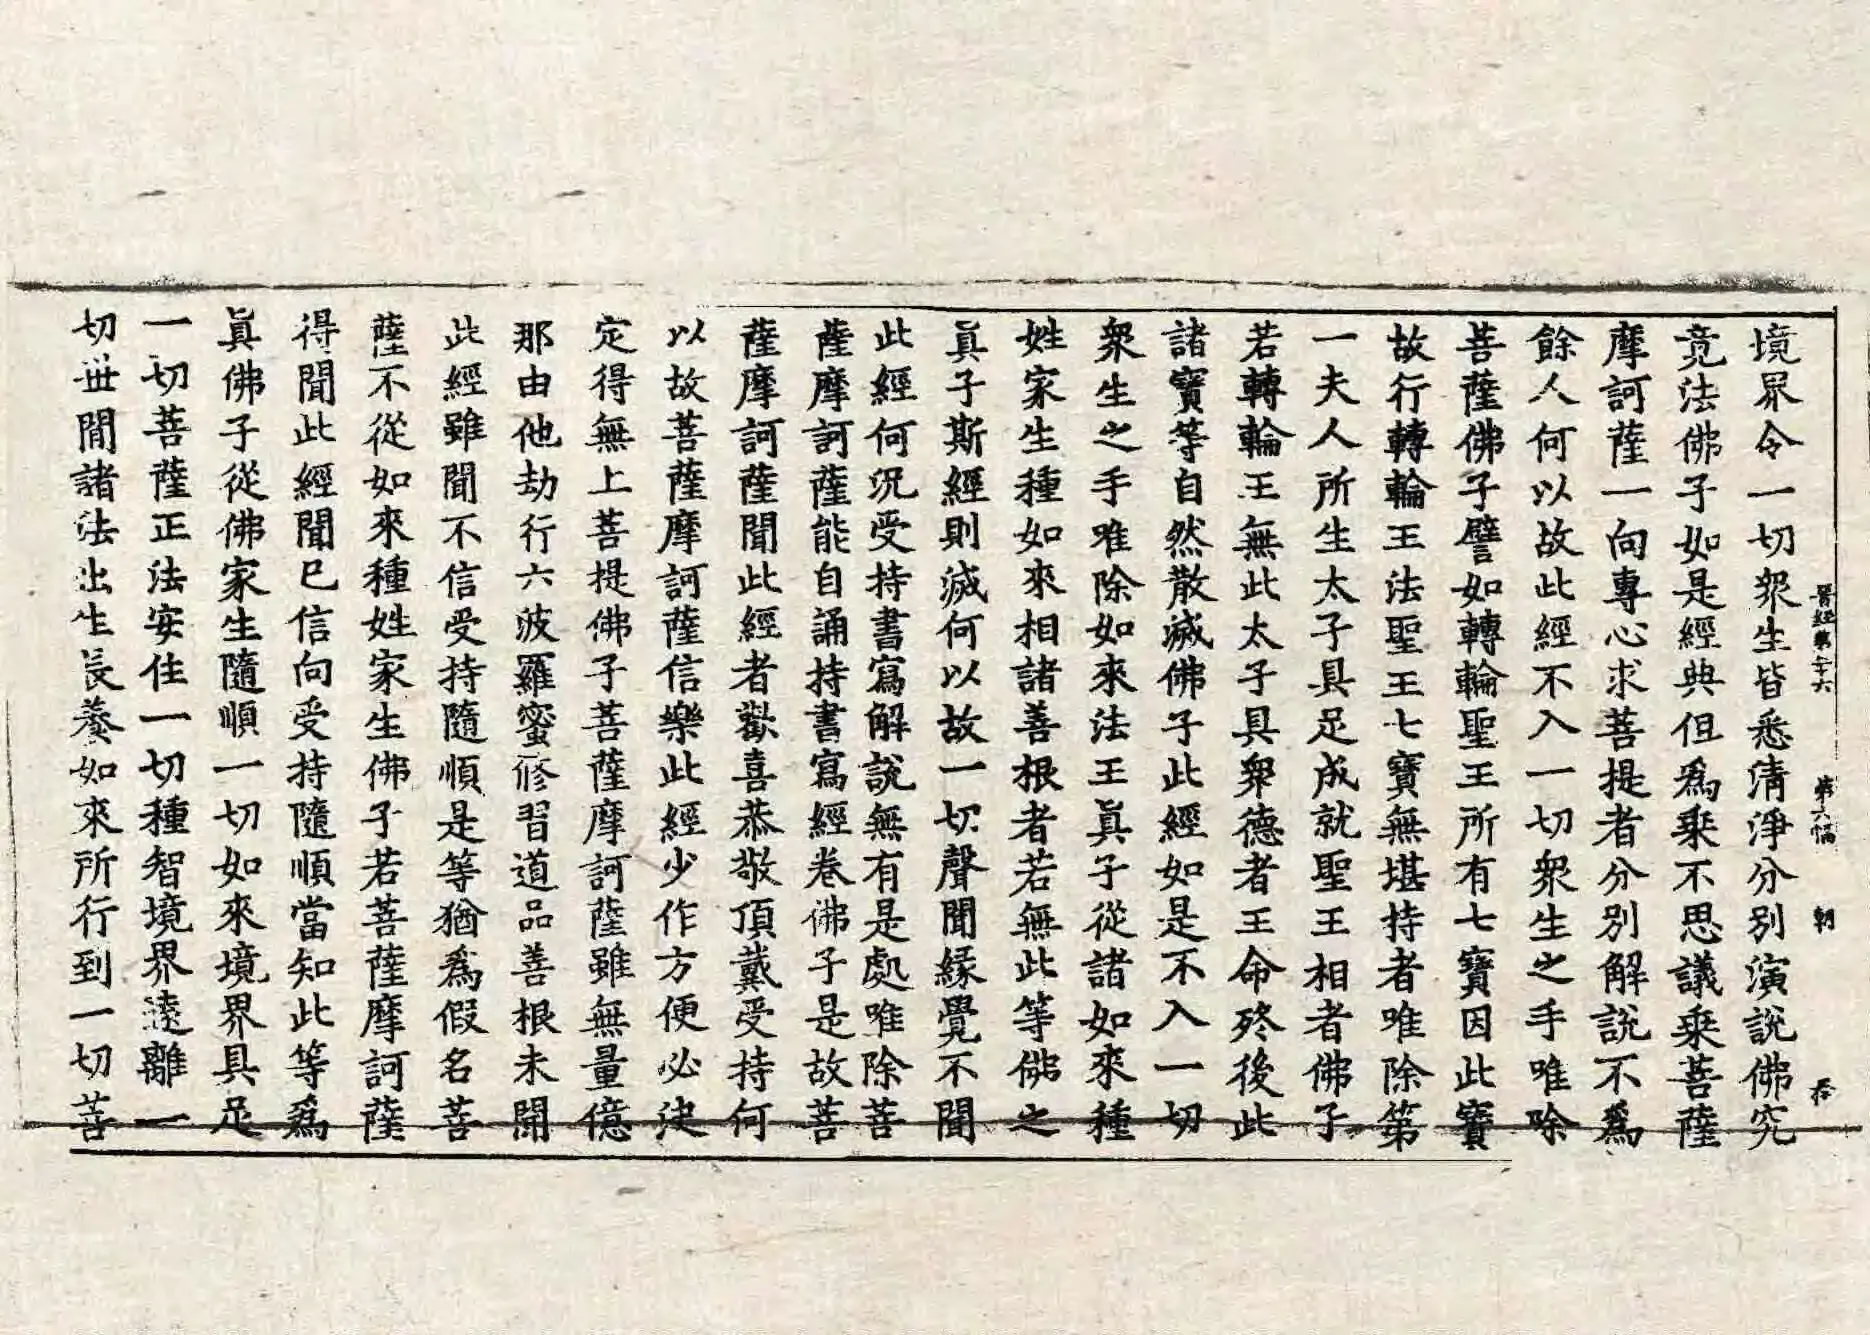 晋經第三十六 第六幅 朝 杏
境界令一切衆生皆悉清淨分別演說佛究
竟法佛子如是經典但爲乘不思議乘菩薩
摩訶薩一向專心求菩提者分別解說不爲
餘人何以故此經不入一切衆生之手唯除
菩薩佛子譬如轉輪聖王所有七寶因此寶
故行轉輪王法聖王七寶無堪持者唯除第
一夫人所生太子具足成就聖王相者佛子
若轉輪王無此太子具衆德者王命終後此
諸寶等自然散滅佛子此經如是不入一切
衆生之手唯除如來法王眞子從諸如來種
姓家生種如來相諸善根者若無此等佛之
眞子斯經則滅何以故一切聲聞緣覺不聞
此經何況受持書寫解說無有是處唯除菩
薩摩訶薩能自誦持書寫經卷佛子是故菩
薩摩訶薩聞此經者歡喜恭敬頂戴受持何
以故菩薩摩訶薩信樂此經少作方便必決
定得無上菩提佛子菩薩摩訶薩雖無量億
那由他劫行六波羅蜜修習道品善根未聞
此經雖聞不信受持隨順是等猶爲假名菩
薩不從如來種姓家生佛子若菩薩摩訶薩
得聞此經聞已信向受持隨順當知此等爲
眞佛子從佛家生隨順一切如來境界具足
一切菩薩正法安住一切種智境界遠離一
切世間諸法出生長養如來所行到一切菩